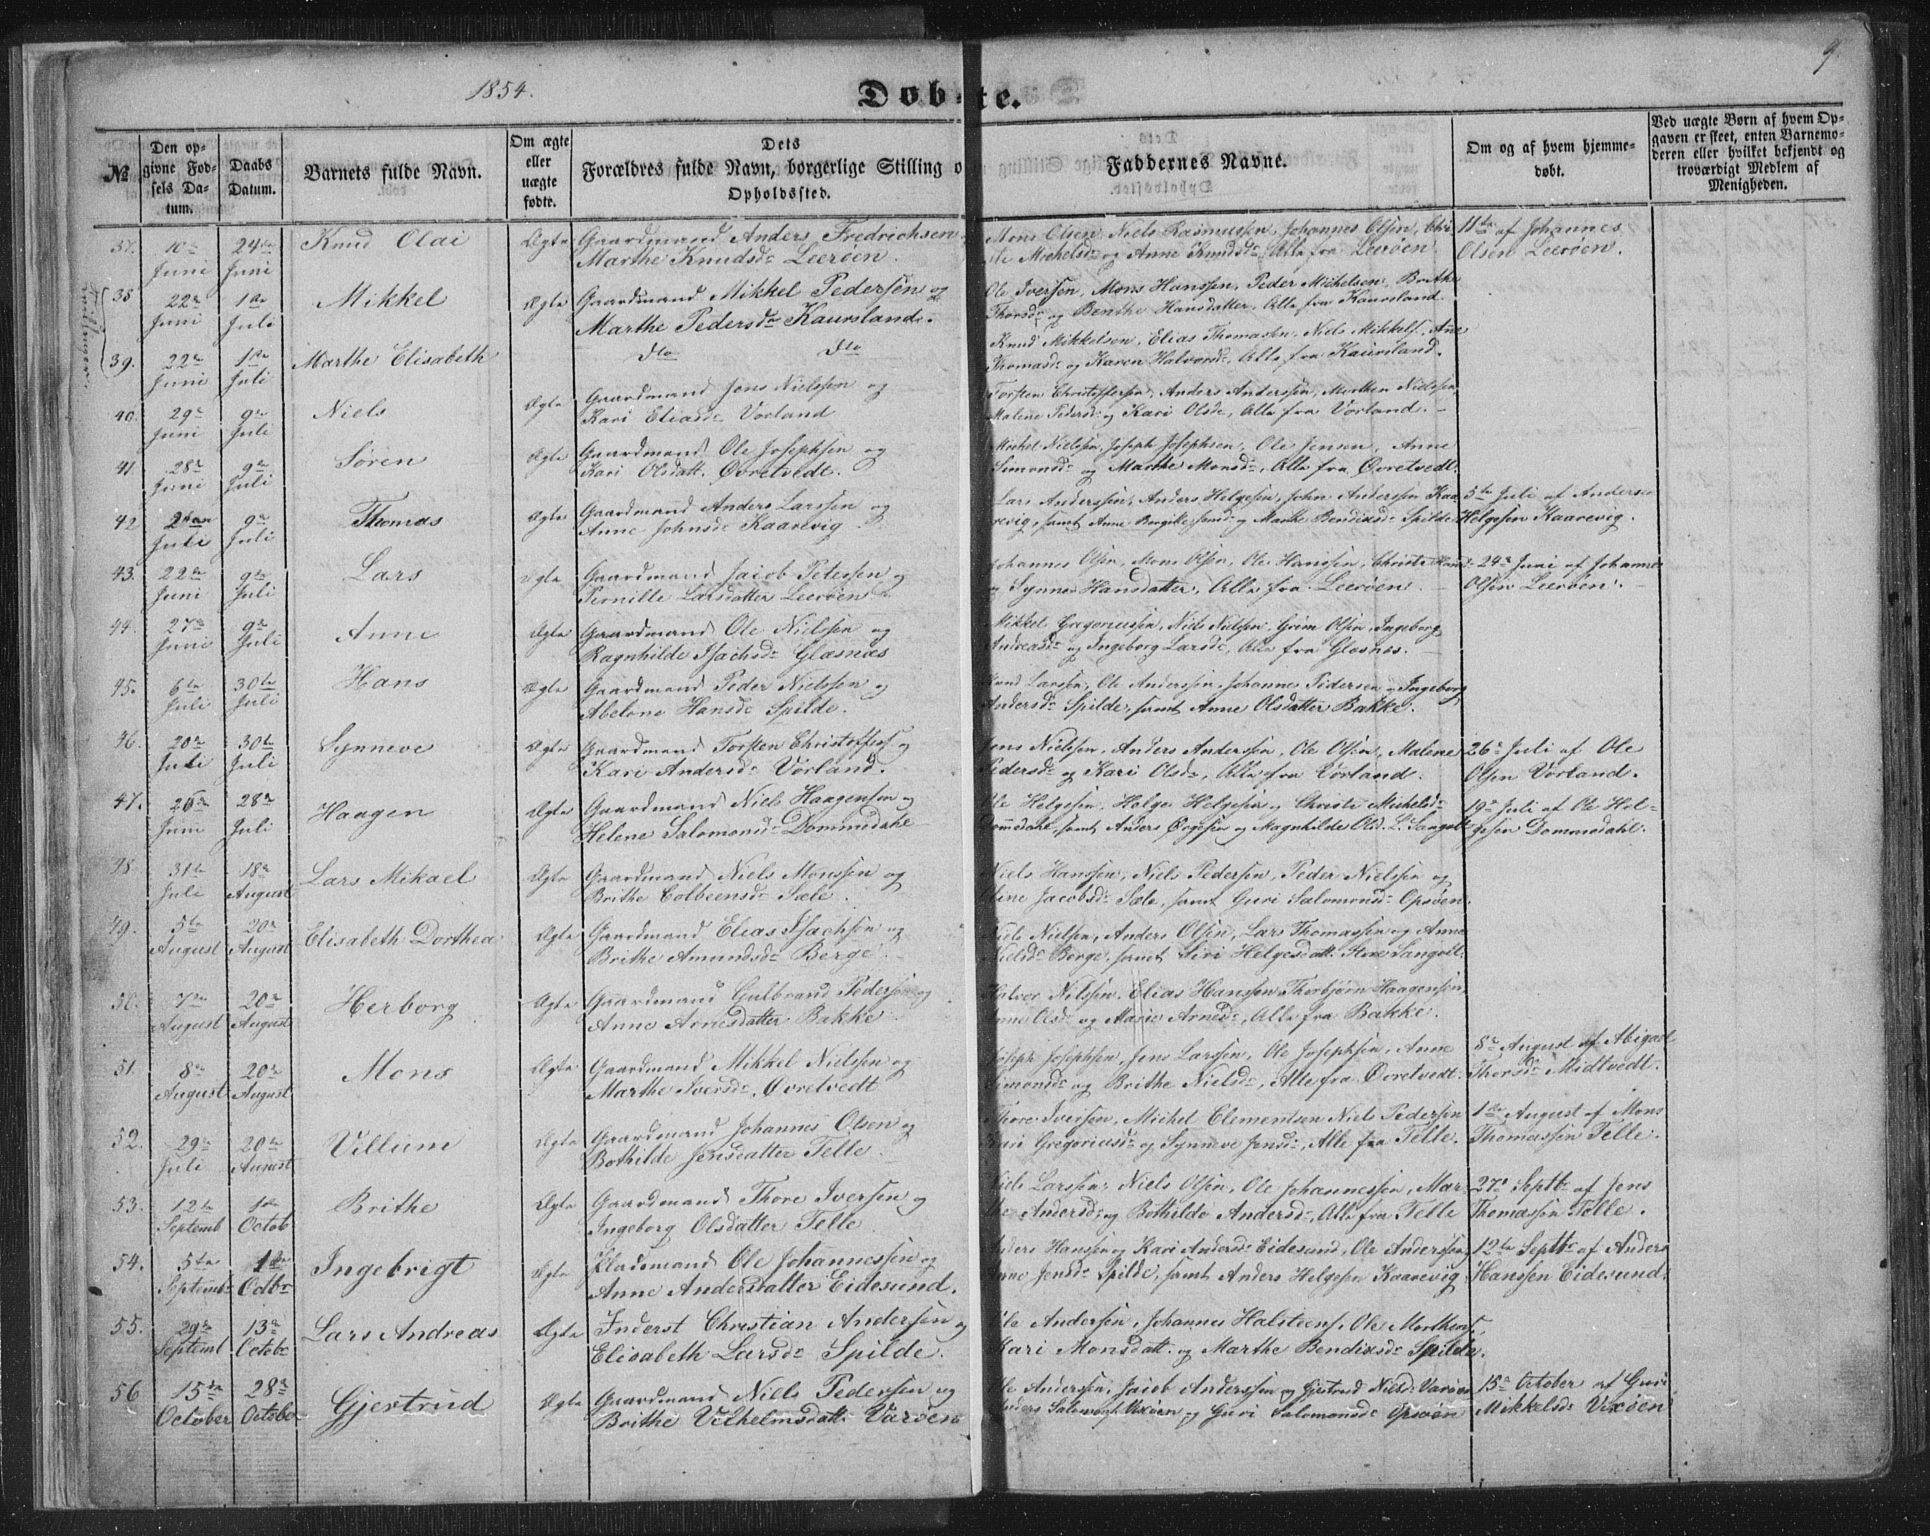 1854.
Døbte.
9.
№
Den opgivne Fødsels Datum.
Daabs Datum.
Barnets fulde Navn.
Om ægte eller uægte fødte.
Dets Forældres fulde Navn, borgerlige Stilling o
Opholdssted.
Faddernes Navne.
Om og af hvem hjemmedøbt.
Ved uægte Børn af hvem Opgaven er skeet, enten Barnemoderen eller hvilket bekjendt og troværdigt Medlem af Menigheden.
37. 10de Juni 24de Juni Knud Olai Ægte Gaardmand Anders Fredrichsen
Marthe Knudsdr Leerøen.
Mons Olsen, Niels Rasmussen, Johannes Olsen,
Michelsdr og Anne Knudsdr, Alle fra Leerøen.
11te af Johannes
Olsen Leerøen.
Tvillinger
38 22de Juni 1ste Juli Mikkel Ægte Gaardmand Mikkel Pedersen og
Marthe Pedersdr Kaursland.
Ole Iversen, Mons Hanssen, Peder Michelsen, Brithe
Thorsdr og Benthe Hansdatter, Alle fra Kaursland.
39. 22de Juni 1ste Juli Marthe Elisabeth dto dto
Knud Mikkelsen, Elias Thomassen, Niels Mikkels, Ane
Thomasdr og Karen Halvorsdr, Alle fra Kaursland.
40. 29de Juni 9de Juli Niels Ægte Gaardmand Jens Nielssen og
Kari Eliasdr Vorland
Torsten Christoffersen, Anders Anderssen, Morthen Nielssen,
Malene Pedersdr og Kari Olsdr, Alle fra Vorland.
41. 28de Juni 9de Juli Søren Ægte Gaardmand Ole Josephsen og
Kari Olsdatt. Øvretvedt.
Michel Nielssen, Joseph Josephsen, Ole Jensen, Anne
Simonsdr og Marthe Monsdr, Alle fra Øvretvedt.
42. 2den Juli 9de Juli Thomas Ægte Gaardmand Anders Larssen og
Anne Johnsdr Kaarevig
Lars Anderssen, Anders Helgesen, John Anderssen Kaa
revig, samt Anne og Marthe Bendixsdr Spilde
5te Juli af Anders
Helgesen Kaarevig.
43. 22de Juni 9de Juli Lars Ægte Gaardmand Jacob Petersen og
Pernille Larsdatter Leerøen
Johannes Olsen, Mons Olsen, Ole Hanssen, Christi
og Synneve Hansdatter, Alle fra Leerøen.
24de Juni af Johannes
Olsen Leerøen.
44. 27de Juni 9de Juli Anne Ægte Gaardmand Ole Nielssen og
Ragnhilde Isachsdr Glæsnæs
Mikkel Gregoriussen, Niels Nielsen, Grim Olsen, Ingeborg
Andreasdr og Ingeborg Larsdr, Alle fra Glæsnes.
45. 6te Juli 30te Juli Hans Ægte Gaardmand Peder Nielssen og
Abelone Hansdr Spilde.
Knud Larssen, Ole Anderssen, Johannes Pedersen og Ingeborg
Andersdr Spilde, samt Anne Olsdatter Bakke.
46. 20de Juli 30te Juli Synneve Ægte Gaardmand Torsten Christoffers og
Kari Andersdr Vorland.
Jens Nielssen, Anders Anderssen, Ole Olsen, Malene
Pedersdr og Kari Olsdr, Alle fra Vorland.
26de Juli af Ole
Olsen Vorland.
47. 26de Juni 28de Juli Haagen Ægte Gaardmand Niels Haagensen og
Helene Salomonsdr Dommedahl
Ole Helgesen, Helge Helgesen og Christi Michelsdr
Dommedahl, samt Anders Ørgesen og Magnhilde Olsd. L. Sangolt
19de Juli af Ole Hel-
gesen Dommedahl.
48. 31te Juli 18de August Lars Mikael Ægte Gaardmand Niels Monssen og
Brithe Colbeensdr Sæle.
Niels Hanssen, Niels Pedersen, Peder Nielssen og
Jacobsdr Sæle, samt Guri Salomonsdr Opsøen.
49. 5te August 20de August Elisabeth Dorthea Ægte Gaardmand Elias Isachsen og
Brithe Amundsdr Berge.
Niels Nielsen, Anders Olsen, Lars Thomassen og Anne
Nielsdr Berge, samt Siri Helgesdatt. Store Sangolt.
50. 7de August 20de August Herborg Ægte Gaardmand Gulbrand Pedersen og
Anne Arnesdatter Bakke.
Halvor Nilssen, Elias Hanssen, Thorbjørn Haagensen,
Anne Olsdr og Marie Arnesdr, Alle fra Bakke.
51. 8de August 20de August Mons Ægte Gaardmand Mikkel Nielssen og
Marthe Iversdr Øvretvedt
Joseph Josephsen, Jens Larssen, Ole Josephsen, Anne
Simonsdr og Brithe Nielsdr, Alle fra Øvretvedt.
8de August af Abigael
Thorsdr Midtvedt.
52. 29de Juli 20de August Villum Ægte Gaardmand Johannes Olsen og
Bothilde Jensdatter Telle
Thore Iversen, Michel Clementsen, Niels Pedersen
Kari Gregoriasdr og Synneve Jensdr, Alle fra Telle.
1ste August af Mons
Thomassen Telle.
53. 12te Septemb 1ste Octob Brithe Ægte Gaardmand Thore Iversen og
Ingeborg Olsdatter Telle
Niels Larssen, Niels Olsen, Ole Johannessen, Mar
the Andersdr og Bothilde Andersdr, Alle fra Telle
27de Septbr af Jens
Thomassen Telle.
54. 5te Septembr 1ste Octbr Ingebrigt Ægte Pladsmand Ole Johannessen og
Anne Andersdatter Eidesund.
Anders Hansen og Kari Andersdr Eidesund, Ole Anderssen,
Anne Jensdr Spilde, samt Anders Helgesen Kaarevig
12te Septbr af Anders
Hanssen Eidesund.
55. 29de Septemb 13de Octobr Lars Andreas Ægte Inderst Christian Andersen og
Elisabeth Larsdr Spilde.
Ole Andersen, Johannes Halsteens, Ole Morthens,
Kari Monsdatt. og Marthe Bendixsdr Spilde.
56 15de October 28de October Gjertrud Ægte Gaardmand Niels Pedersen og
Brithe Vilhelmsdatt. Varøen
Ole Anderssen, Jacob Anderssen og Gjertrud Nielsdr Varøen
Anders Salomons Vixøen og Guri Salomonsdr Opsøen
15de October af Guri
Mikkelsdr Vixøen